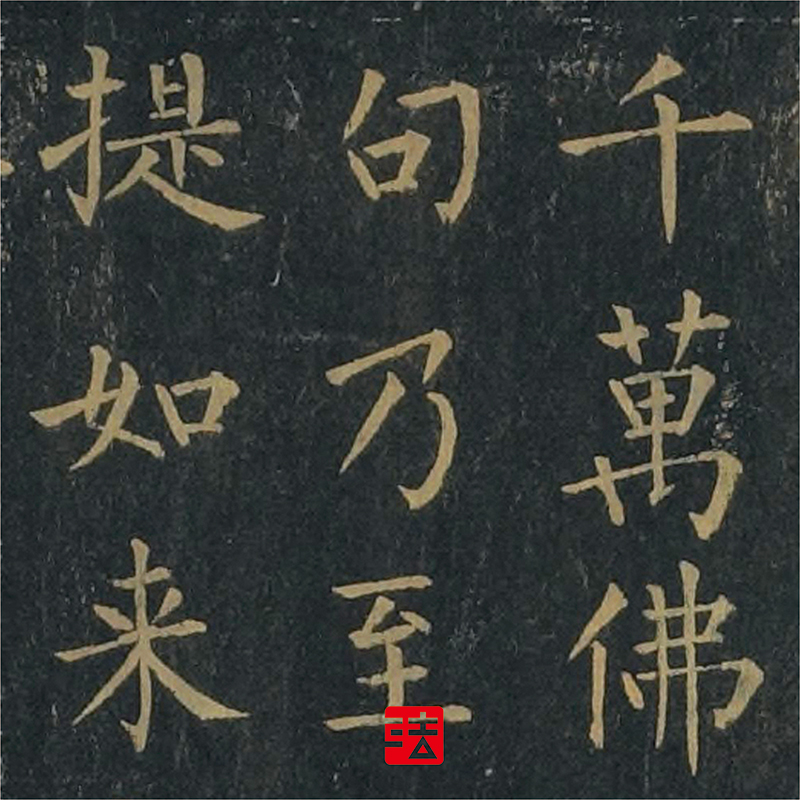 千萬佛
句乃至
提如来